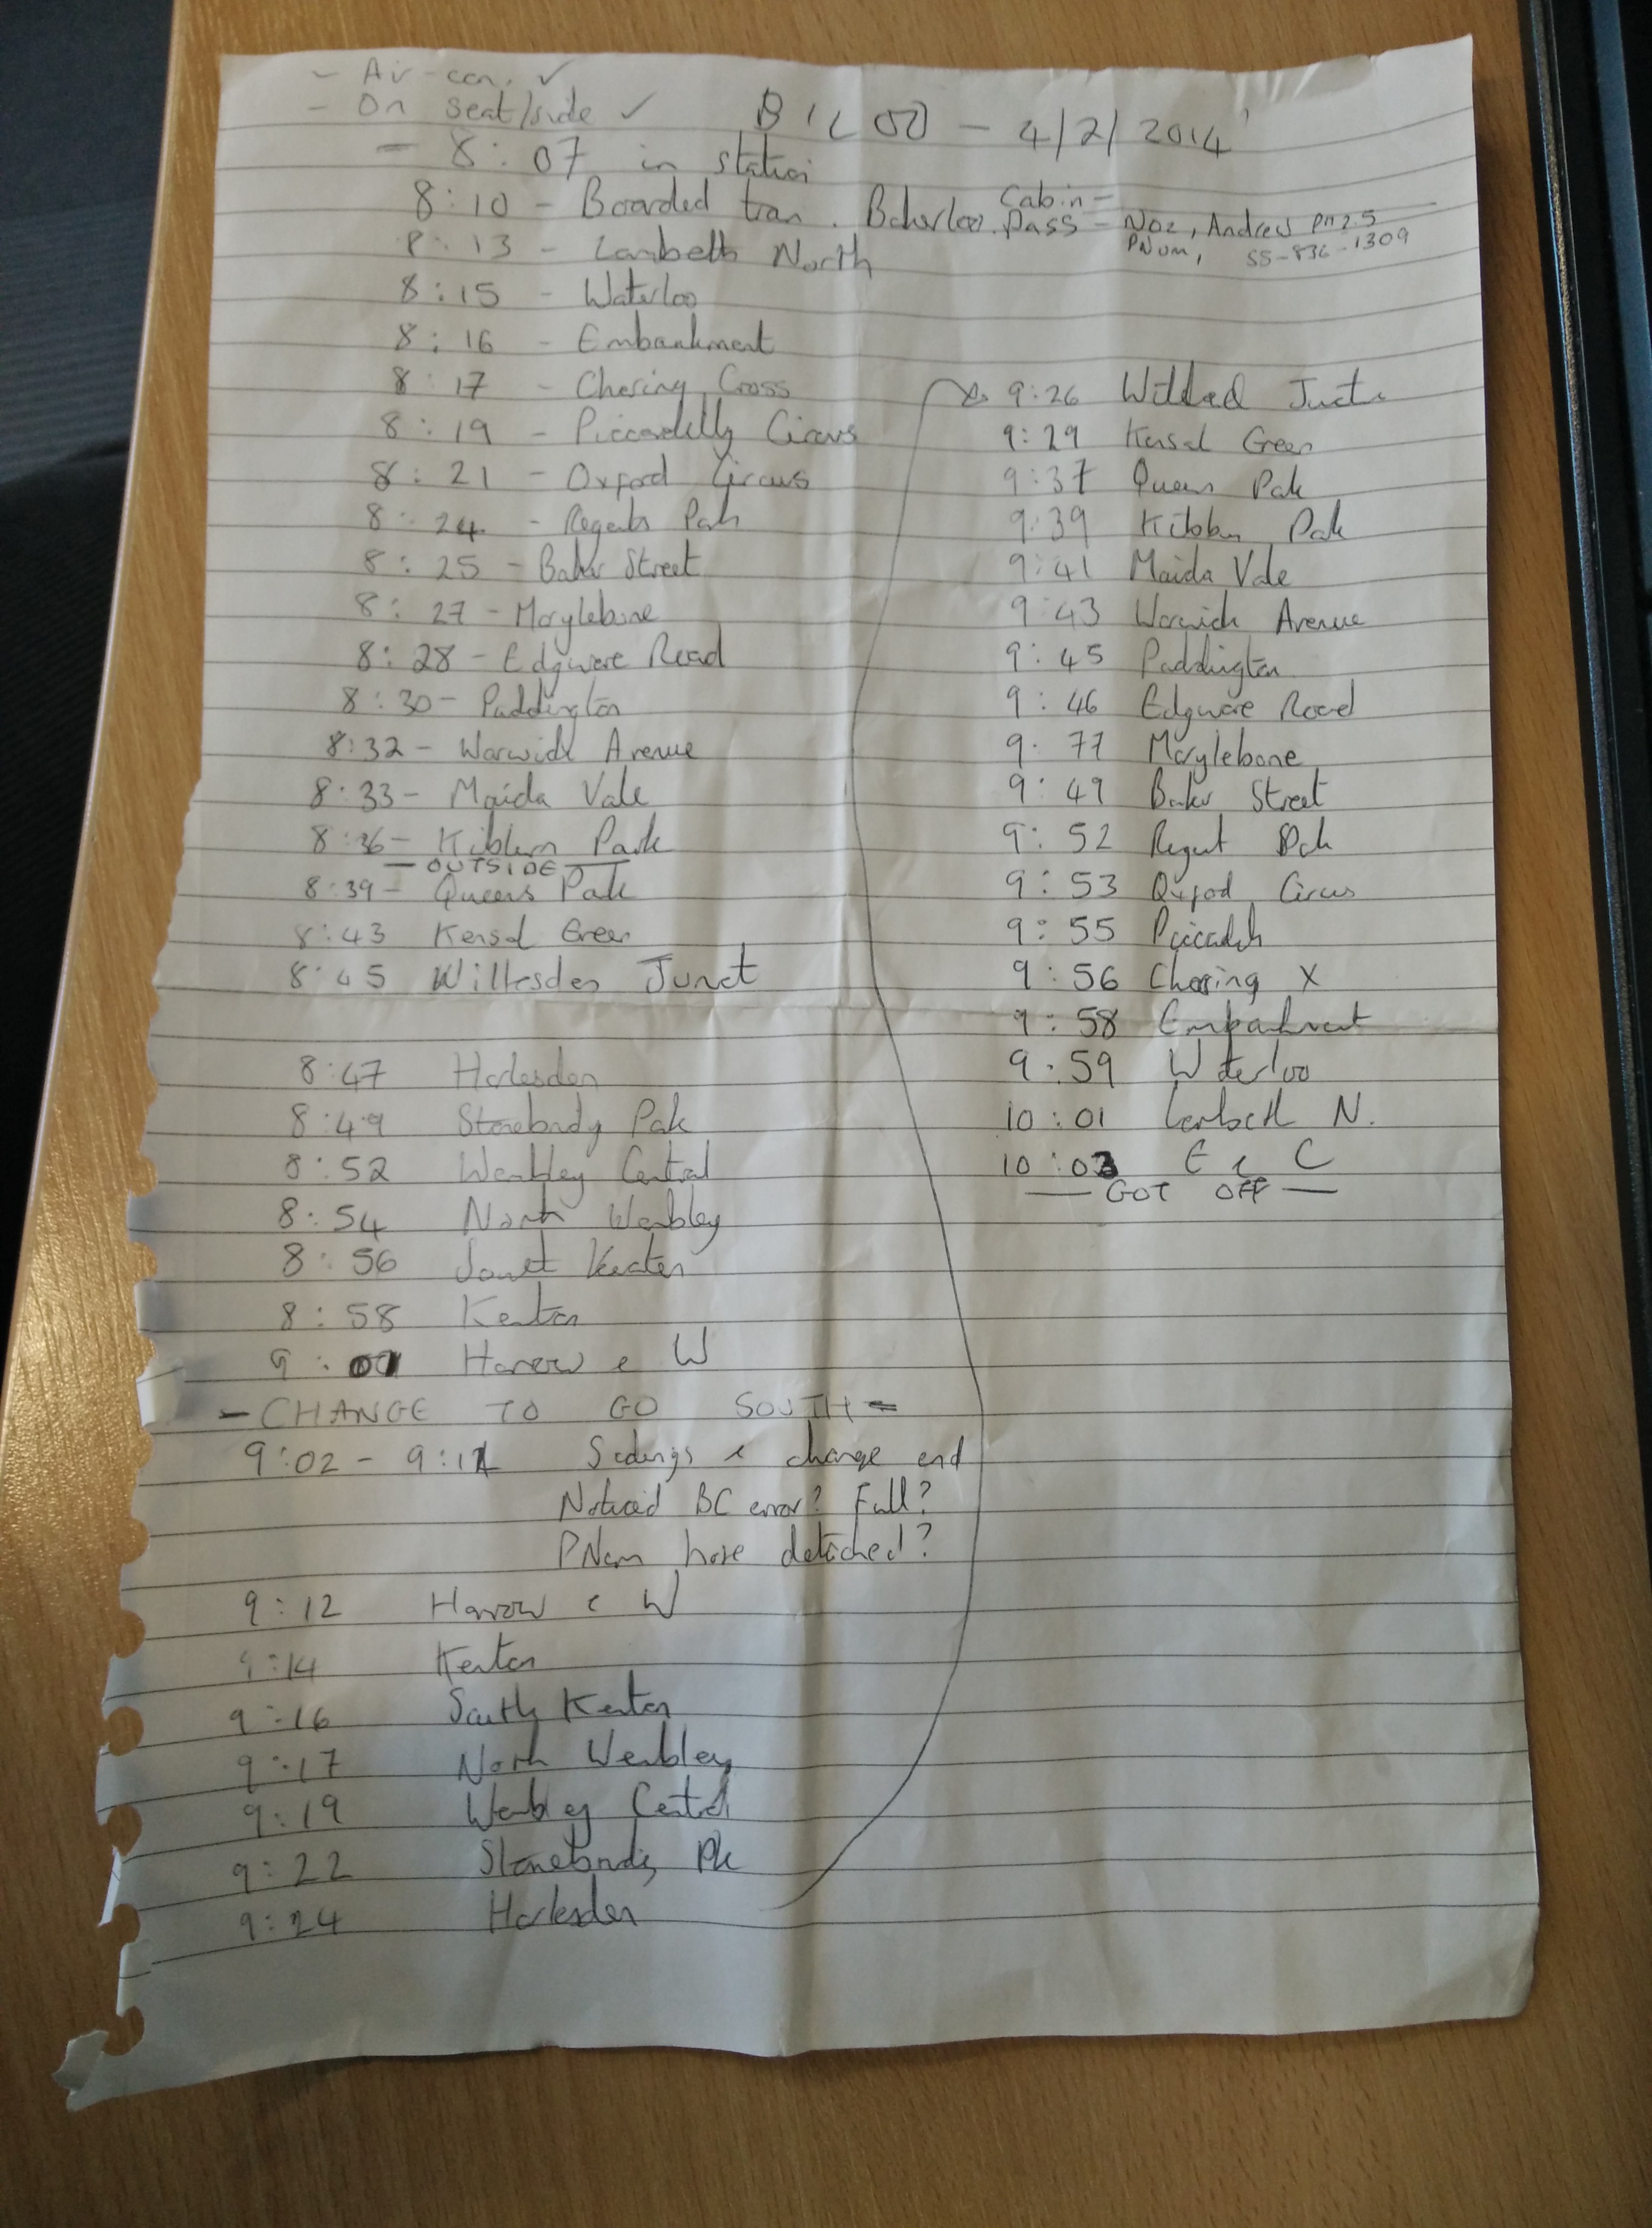 - Air-con. ✓
- On seat/side ✓
B1L00 - 4/2/2014
- 8:07 in station
8:10 - Boarded tran. Bakerloo.
Cabin -
Pass - NO2, Andrew PM2.5
PNum, SS-836-1309
8:13 - Lambeth North
8:15 - Waterloo
8:16 - Embankment
8:17 - Charing Cross
8:19 - Piccadelly Circus
8:21 - Oxford Circus
8:24 - Regents Park
8:25 - Baker Street
8:27 - Marylebone
8:28 - Edgware Road
8:30 - Paddington
8:32 - Warwick Avenue
8:33 - Maida Vale
8:36 - Kilburn Park
- OUTSIDE -
8:39 - Queens Park
8:43 Kensal Green
8:45 Willesden Junct
8:47 Harlesden
8:49 Stonebridg Park
8:52 Wembley Central
8:54 North Wembley
8:56 South Kenton
8:58 Kenton
9:00 Harrow & W
- CHANGE TO GO SOUTH -
9:02 - 9:11 Sidings & change end
Noticed BC error? Full?
PNum have detached?
9:12 Harrow & W
9:14 Kenton
9:16 South Kenton
9:17 North Wembley
9:19 Wembley Central
9:22 Stonebridg Pk
9:24 Harlesden
9:26 Willesd Junct
9:29 Kensal Green
9:37 Queens Park
9:39 Kilburn Park
9:41 Maida Vale
9:43 Warwick Avenue
9:45 Paddington
9:46 Edgware Road
9:77 Marylebone
9:49 Baker Street
9:52 Regent Park
9:53 Oxford Circus
9:55 Piccadily
9:56 Charing X
9:58 Embankment
9:59 Waterloo
10:01 Lambeth N.
10:03 E & C
- GOT OFF -